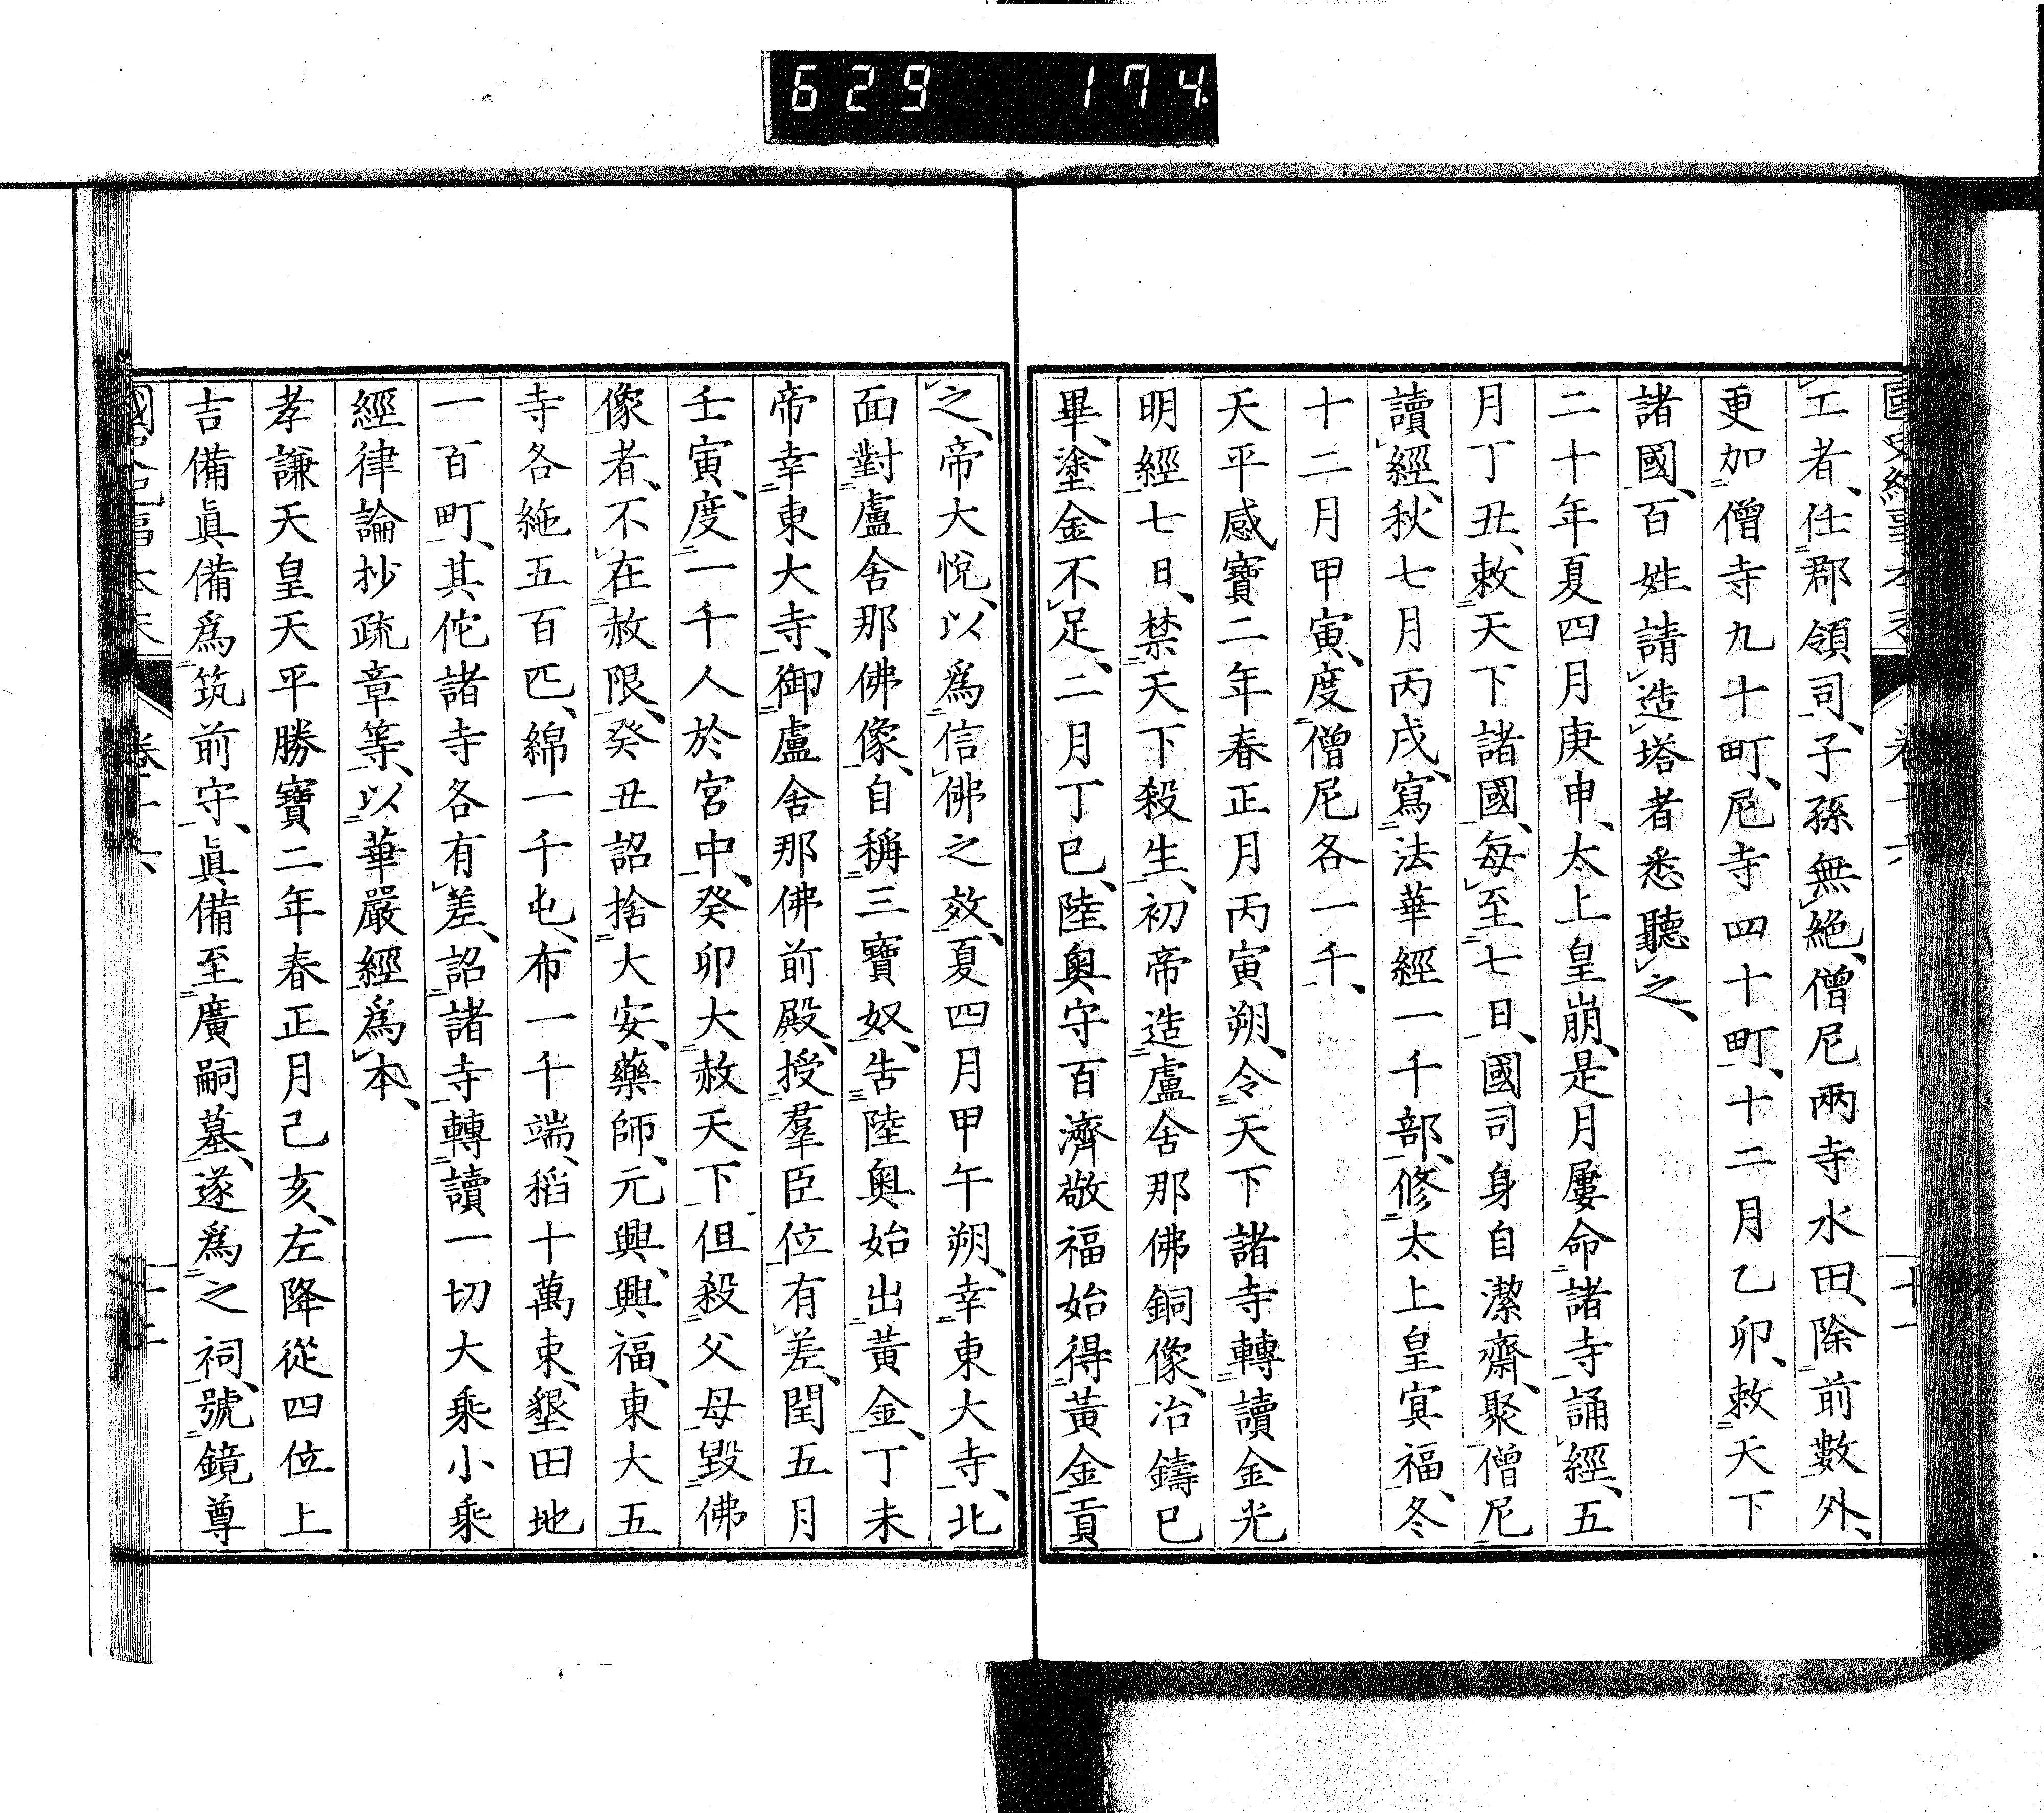 629 174
工者、任郡領司、子孫無絶、僧尼兩寺水田、除前數外、
更加僧寺九十町、尼寺四十町、十二月乙卯、敕天下
諸國、百姓請造塔者悉聽之、
二十年夏四月庚申、太上皇崩、是月屢命諸寺誦經、五
月丁丑、敕天下諸國、每至七日、國司身自潔齋、聚僧尼
讀經、秋七月丙戌、寫法華經一千部、修太上皇冥福、冬
十二月甲寅、度僧尼各一千、
天平感寶二年春正月丙寅朔、令天下諸寺轉讀金光
明經七日、禁天下殺生、初帝造盧舍那佛銅像、冶鑄已
畢、塗金不足、二月丁巳、陸奧守百濟敬福始得黃金貢
之、帝大悅、以爲信佛之效、夏四月甲午朔、幸東大寺、北
面對盧舍那佛像、自稱三寶奴、告陸奧始出黃金、丁未
帝幸東大寺、御盧舍那佛前殿、授羣臣位有差、閏五月
壬寅、度一千人於宮中、癸卯大赦天下、但殺父母毀佛
像者、不在赦限、癸丑詔捨大安、藥師、元興、興福、東大五
寺各絁五百匹、綿一千屯、布一千端、稻十萬束、墾田地
一百町、其佗諸寺各有差、詔諸寺轉讀一切大乘小乘
經律論抄疏章等、以華嚴經爲本、
孝謙天皇天平勝寶二年春正月己亥、左降從四位上
吉備眞備爲筑前守、眞備至廣嗣墓、遂爲之祠、號鏡尊